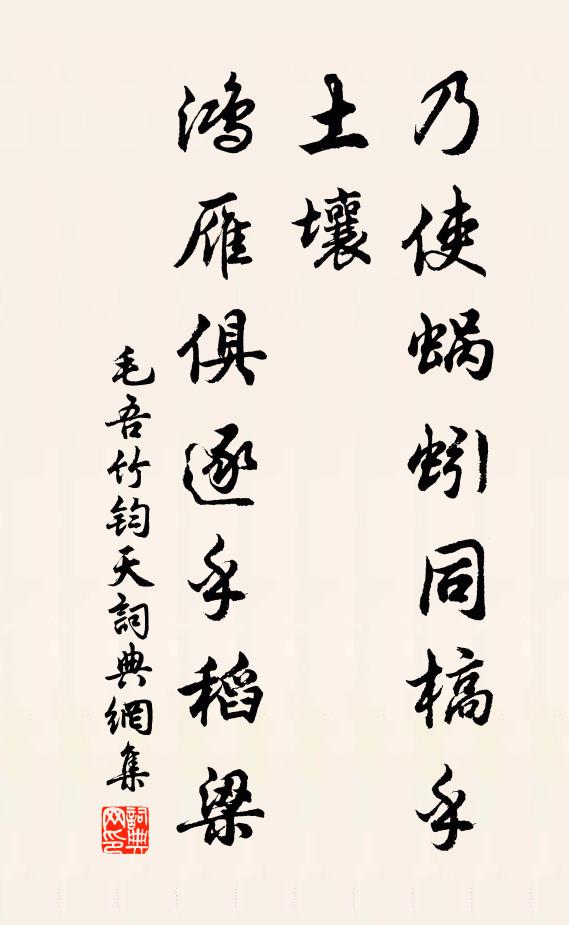 乃使蝸蚓同槁乎
土壤
鴻雁俱逐乎稻梁
毛吾竹鈞天詞典網集
詞典
網印